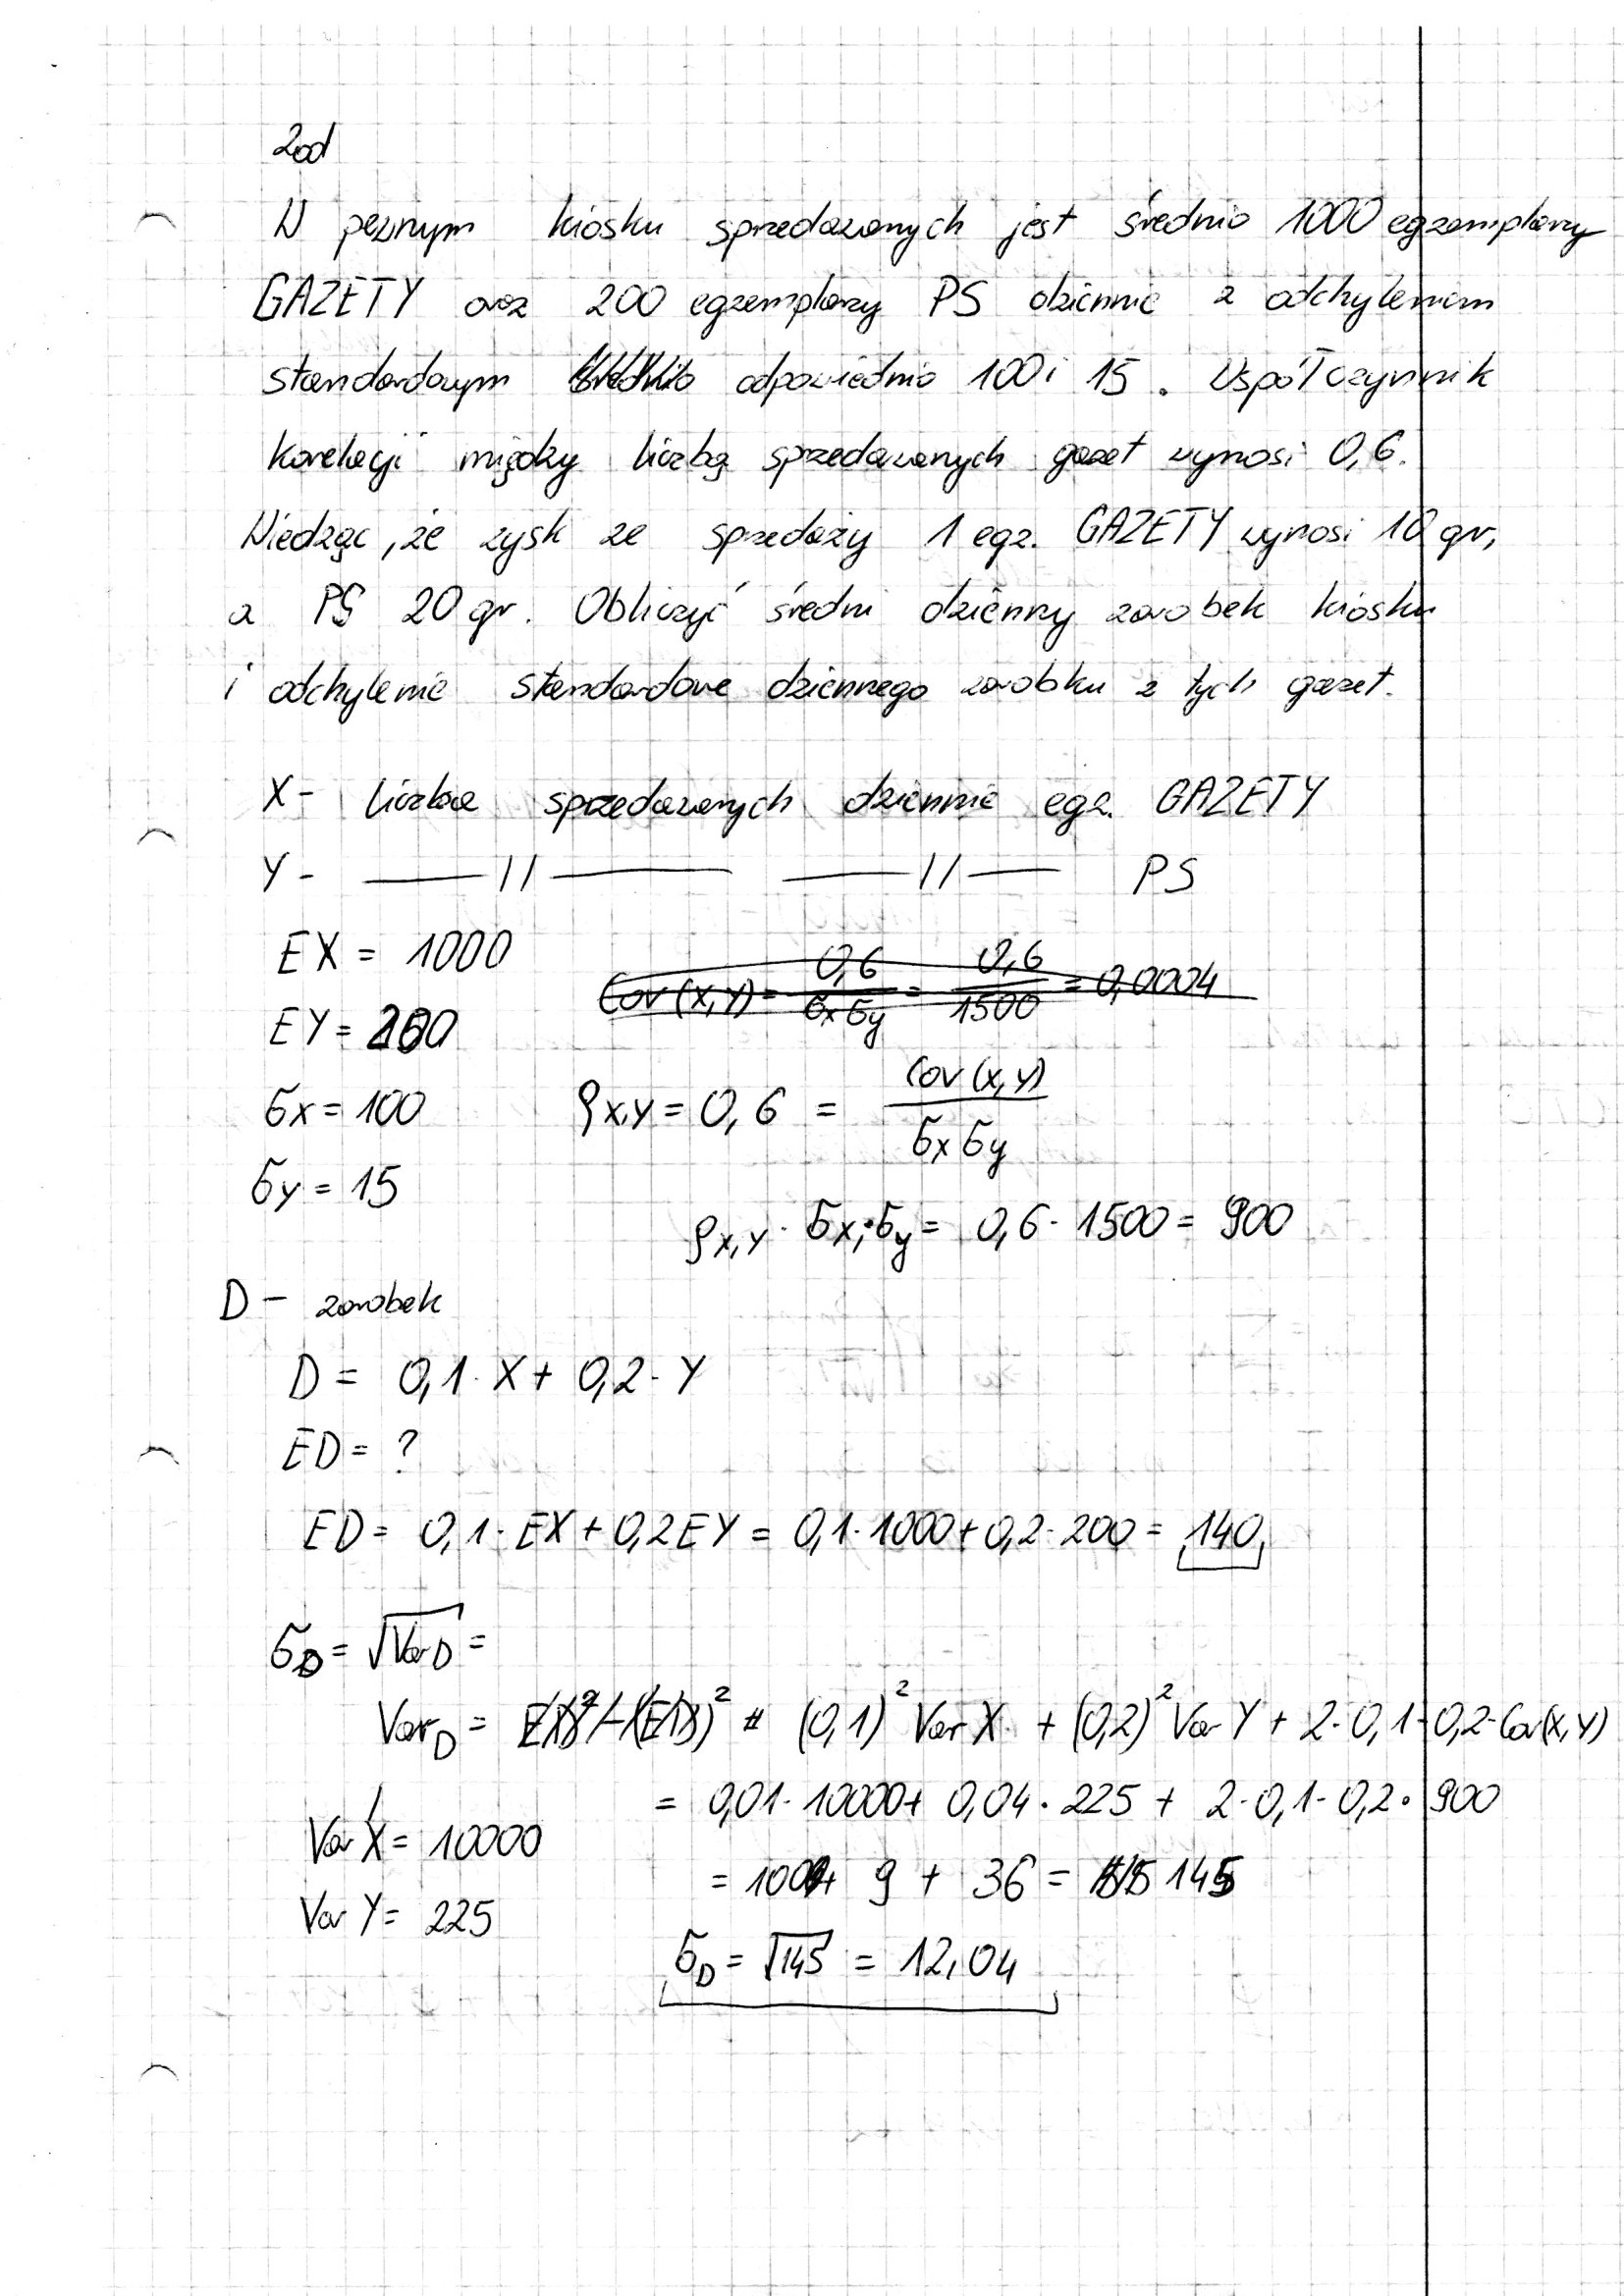 Zad
W pewnym kiosku sprzedawanych jest średnio 1000 egzemplarzy
GAZETY oraz 200 egzemplarzy PS dziennie z odchyleniem
standardowym odpowiednio 100 i 15. Współczynnik
korelacji między liczbą sprzedawanych gazet wynosi 0,6.
Wiedząc, że zysk ze sprzedaży 1 egz. GAZETY wynosi 10 gr,
a PS 20 gr. Obliczyć średni dzienny zarobek kiosku
i odchylenie standardowe dziennego zarobku z tych gazet.
X - liczba sprzedawanych dziennie egz. GAZETY
Y - —— // —— —— // —— PS
EX = 1000
Cov(X,Y) = 0,6 / σxσy = 0,6 / 1500 = 0,0004
EY = 200
σx = 100
ρx,y = 0,6 = Cov(x,y) / σxσy
σy = 15
ρx,y · σx · σy = 0,6 · 1500 = 900
D - zarobek
D = 0,1 · X + 0,2 · Y
ED = ?
ED = 0,1 · EX + 0,2EY = 0,1 · 1000 + 0,2 · 200 = 140
σD = √VarD =
VarD = (0,1)² Var X + (0,2)² Var Y + 2 · 0,1 · 0,2 · Cov(X,Y)
= 0,01 · 10000 + 0,04 · 225 + 2 · 0,1 · 0,2 · 900
Var X = 10000
= 100 + 9 + 36 = 145
Var Y = 225
σD = √145 = 12,04